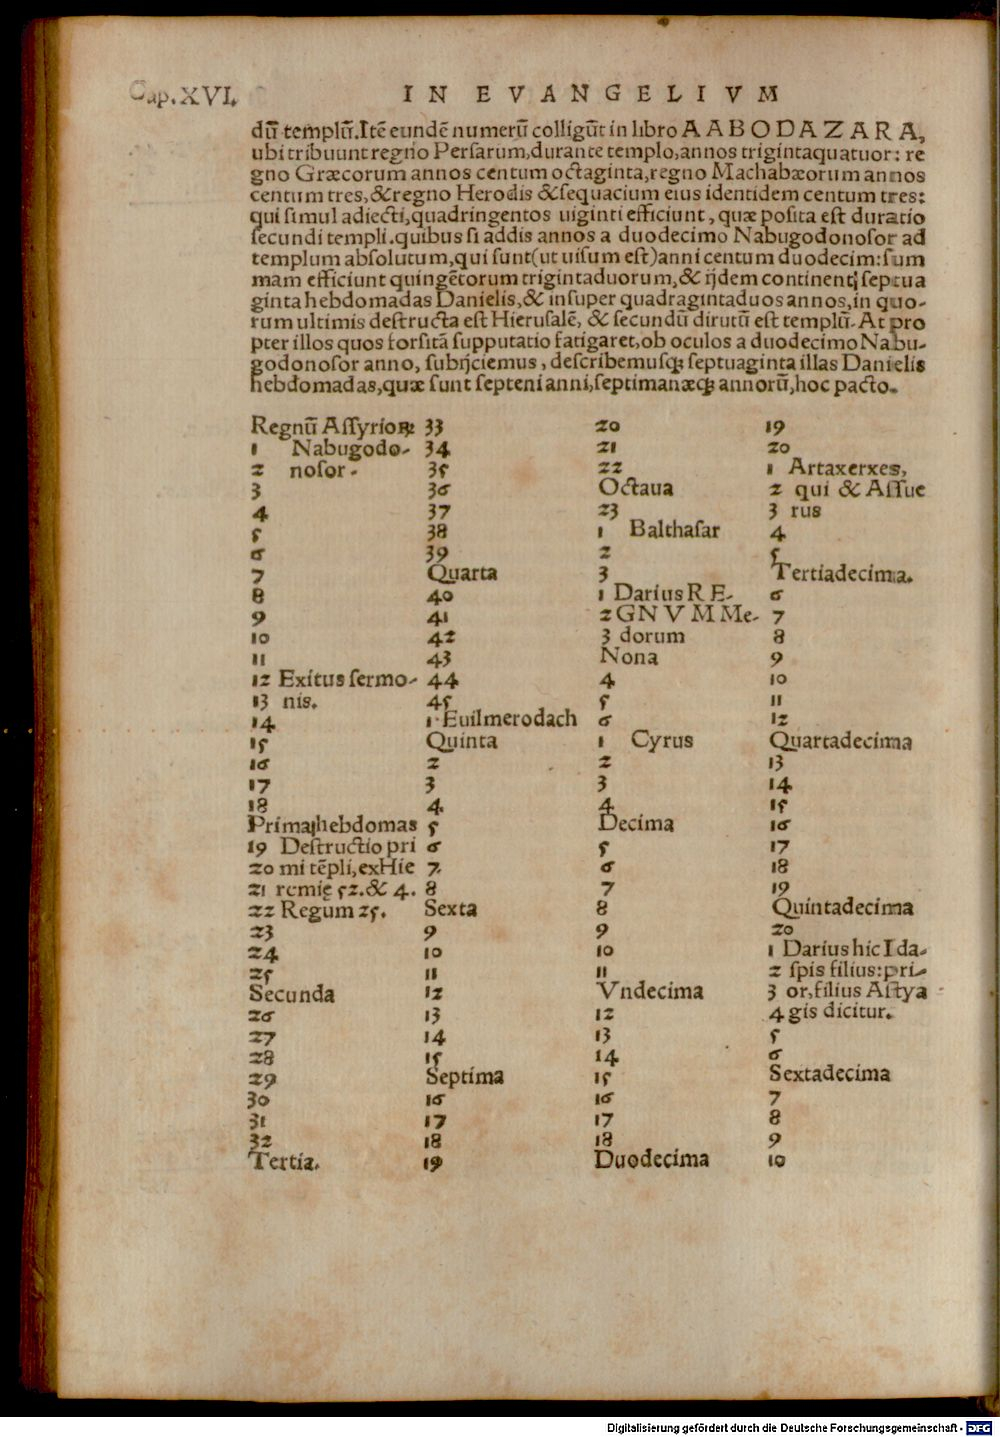 Cap. XVI.
IN EVANGELIVM
dū templū. Itē eundē numerū colligūt in libro AABODAZARA,
ubi tribuunt regno Persarum, durante templo, annos trigintaquatuor: re
gno Græcorum annos centum octaginta, regno Machabæorum annos
centum tres, & regno Herodis & sequacium eius identidem centum tres:
qui simul adiecti, quadringentos uiginti efficiunt, quæ posita est duratio
secundi templi. quibus si addis annos a duodecimo Nabugodonosor ad
templum absolutum, qui sunt (ut uisum est) anni centum duodecim: sum
mam efficiunt quingētorum trigintaduorum, & ijdem continent septua
ginta hebdomadas Danielis, & insuper quadragintaduos annos, in quo-
rum ultimis destructa est Hierusalē, & secundū dirutū est templū. At pro
pter illos quos forsitā supputatio fatigaret, ob oculos a duodecimo Nabu-
godonosor anno, subijciemus, describemusq; septuaginta illas Danielis
hebdomadas, quæ sunt septeni anni, septimanæq; annorū, hoc pacto.
Regnū Assyrioꝝ:
1 Nabugodo-
2 nosor.
3
4
5
6
7
8
9
10
11
12 Exitus sermo-
13 nis.
14
15
16
17
18
Prima hebdomas
19 Destructio pri
20 mi tēpli, ex Hie
21 remię 52. & 4.
22 Regum 25.
23
24
25
Secunda
26
27
28
29
30
31
32
Tertia.
33
34
35
36
37
38
39
Quarta
40
41
42
43
44
45
1 Euilmerodach
Quinta
2
3
4
5
6
7
8
Sexta
9
10
11
12
13
14
15
Septima
16
17
18
19
20
21
22
Octaua
23
1 Balthasar
2
3
1 Darius RE-
2 GNVM Me-
3 dorum
Nona
4
5
6
1 Cyrus
2
3
4
Decima
5
6
7
8
9
10
11
Vndecima
12
13
14
15
16
17
18
Duodecima
19
20
1 Artaxerxes,
2 qui & Assue
3 rus
4
5
Tertiadecima.
6
7
8
9
10
11
12
Quartadecima
13
14
15
16
17
18
19
Quintadecima
20
1 Darius hic Ida-
2 spis filius: pri-
3 or, filius Astya
4 gis dicitur.
5
6
Sextadecima
7
8
9
10
Digitalisierung gefördert durch die Deutsche Forschungsgemeinschaft - DFG